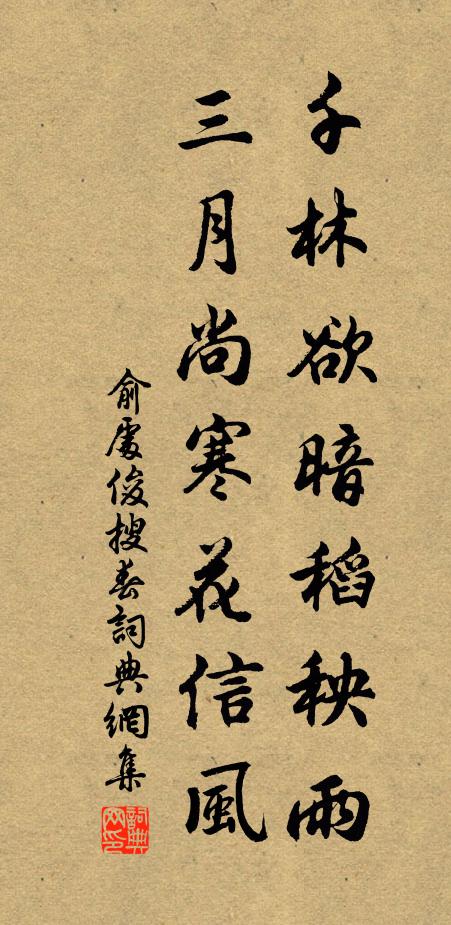 千林欲暗稻秧雨
三月尚寒花信風
俞處俊搜春詞典網集
詞典網印